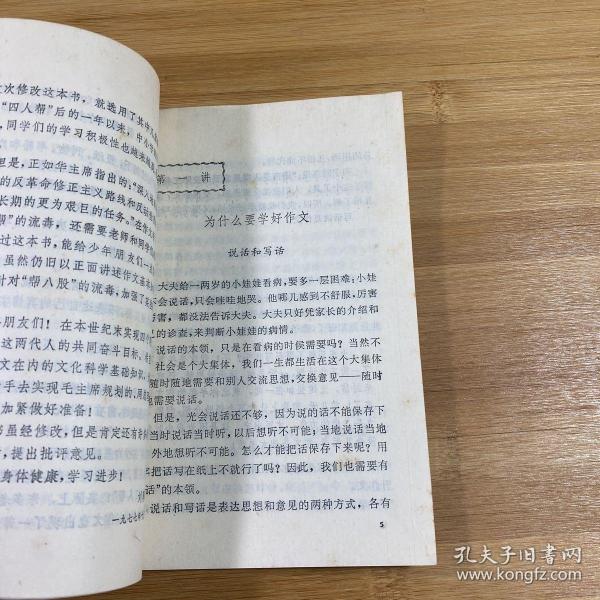 次修改这本书，就选用了其中
“四人帮”后的一年以来，中小学
同学们的学习积极性也越来越
但是，正如华主席指出的：“深入
的反革命修正主义路线和反动
长期的更为艰巨的任务。”在作文
帮”的流毒，还需要老师和同学
过这本书，能给少年朋友们一
虽然仍旧以正面讲述作文基本
针对“帮八股”的流毒，加强了
朋友们！在本世纪末实现四个
这两代人的共同奋斗目标，
文在内的文化科学基础知识，
手去实现毛主席规划的，周总
加紧做好准备！
书虽经修改，但是肯定还有许
，提出批评意见。
身体健康，学习进步！
一九七七年
第 讲
为什么要学好作文
说话和写话
大夫给一两岁的小娃娃看病，要多一层困难：小娃
不会说话，只会哇哇地哭。他哪儿感到不舒服，厉害
厉害，都没法告诉大夫。大夫只好凭家长的介绍和
的诊查，来判断小娃娃的病情。
说话的本领，只是在看病的时候需要吗？当然不
社会是个大集体，我们一生都生活在这个大集体
随时随地需要和别人交流思想，交换意见——随时
地需要说话。
但是，光会说话还不够，因为说的话不能保存下
当时说话当时听，以后想听不可能；当地说话当地
外地想听不可能。怎么才能把话保存下来呢？用
把话写在纸上不就行了吗？因此，我们也需要有
话”的本领。
说话和写话是表达思想和意见的两种方式，各有
5
孔夫子旧书网
www.kongfz.com